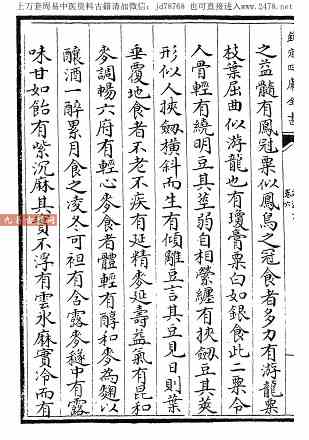 上万套周易中医资料古籍清加微信：jd78768 也可直接进入www.2478.net
欽定四庫全書
卷六
之益髓有鳳冠粟似鳳鳥之冠食者多力有游龍粟
枝葉屈曲似游龍也有瓊膏粟白如銀食此二粟令
人骨輕有繞明豆其莖弱自相縈纒有挾劔豆其莢
形似人挾劔横斜而生有傾離豆言其豆見日則葉
垂覆地食者不老不疾有延精麥延壽益氣有昆和
麥調暢六府有輕心麥食者體輕有醇和麥為麴以
釀酒一醉累月食之凌冬可袒有含露麥穟中有露
味甘如飴有紫沉麻其實不浮有雲氷麻實冷而有